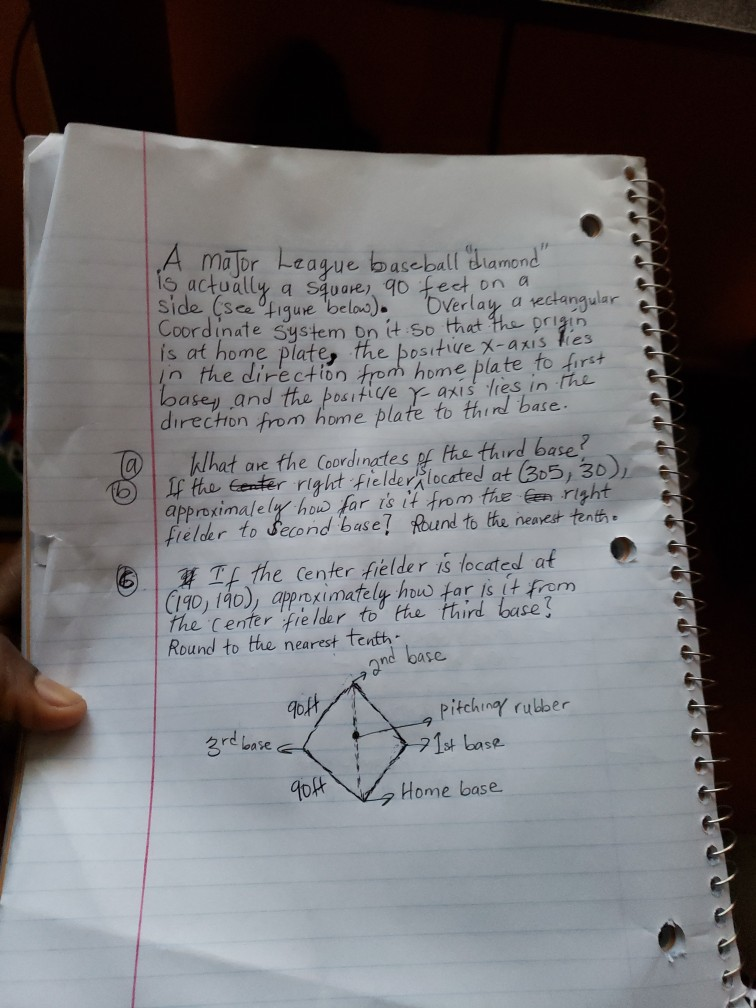 A major League baseball "diamond"
is actually a square, 90 feet on a
side (see figure below). Overlay a rectangular
Coordinate System on it so that the origin
is at home plate, the positive x-axis lies
in the direction from home plate to first
base, and the positive Y-axis lies in the
direction from home plate to third base.
(a) What are the coordinates of the third base?
(b) If the right fielder is located at (305, 30),
approximately how far is it from the right
fielder to second base? Round to the nearest tenth.
(c) If the center fielder is located at
(190, 190), approximately how far is it from
the center fielder to the third base?
Round to the nearest tenth.
2nd base
90ft
pitching rubber
3rd base
1st base
90ft
Home base